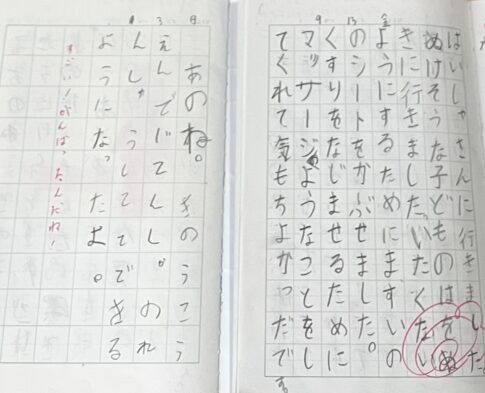 9 13 金
はいしゃさんに行きました。
ぬけそうな子どものはをぬ
きに行きました。いたくない
ようにするためにますいの
のシートをかぶせました。
くすりをなじませるために
マサージのようなことをし
てくれて気もちよかっだで
す。
日
あのね。きのうこう
えんでじてんしゃのれ
んしゅうしてできる
ようになったよ。
すごい！がんばったんだね！